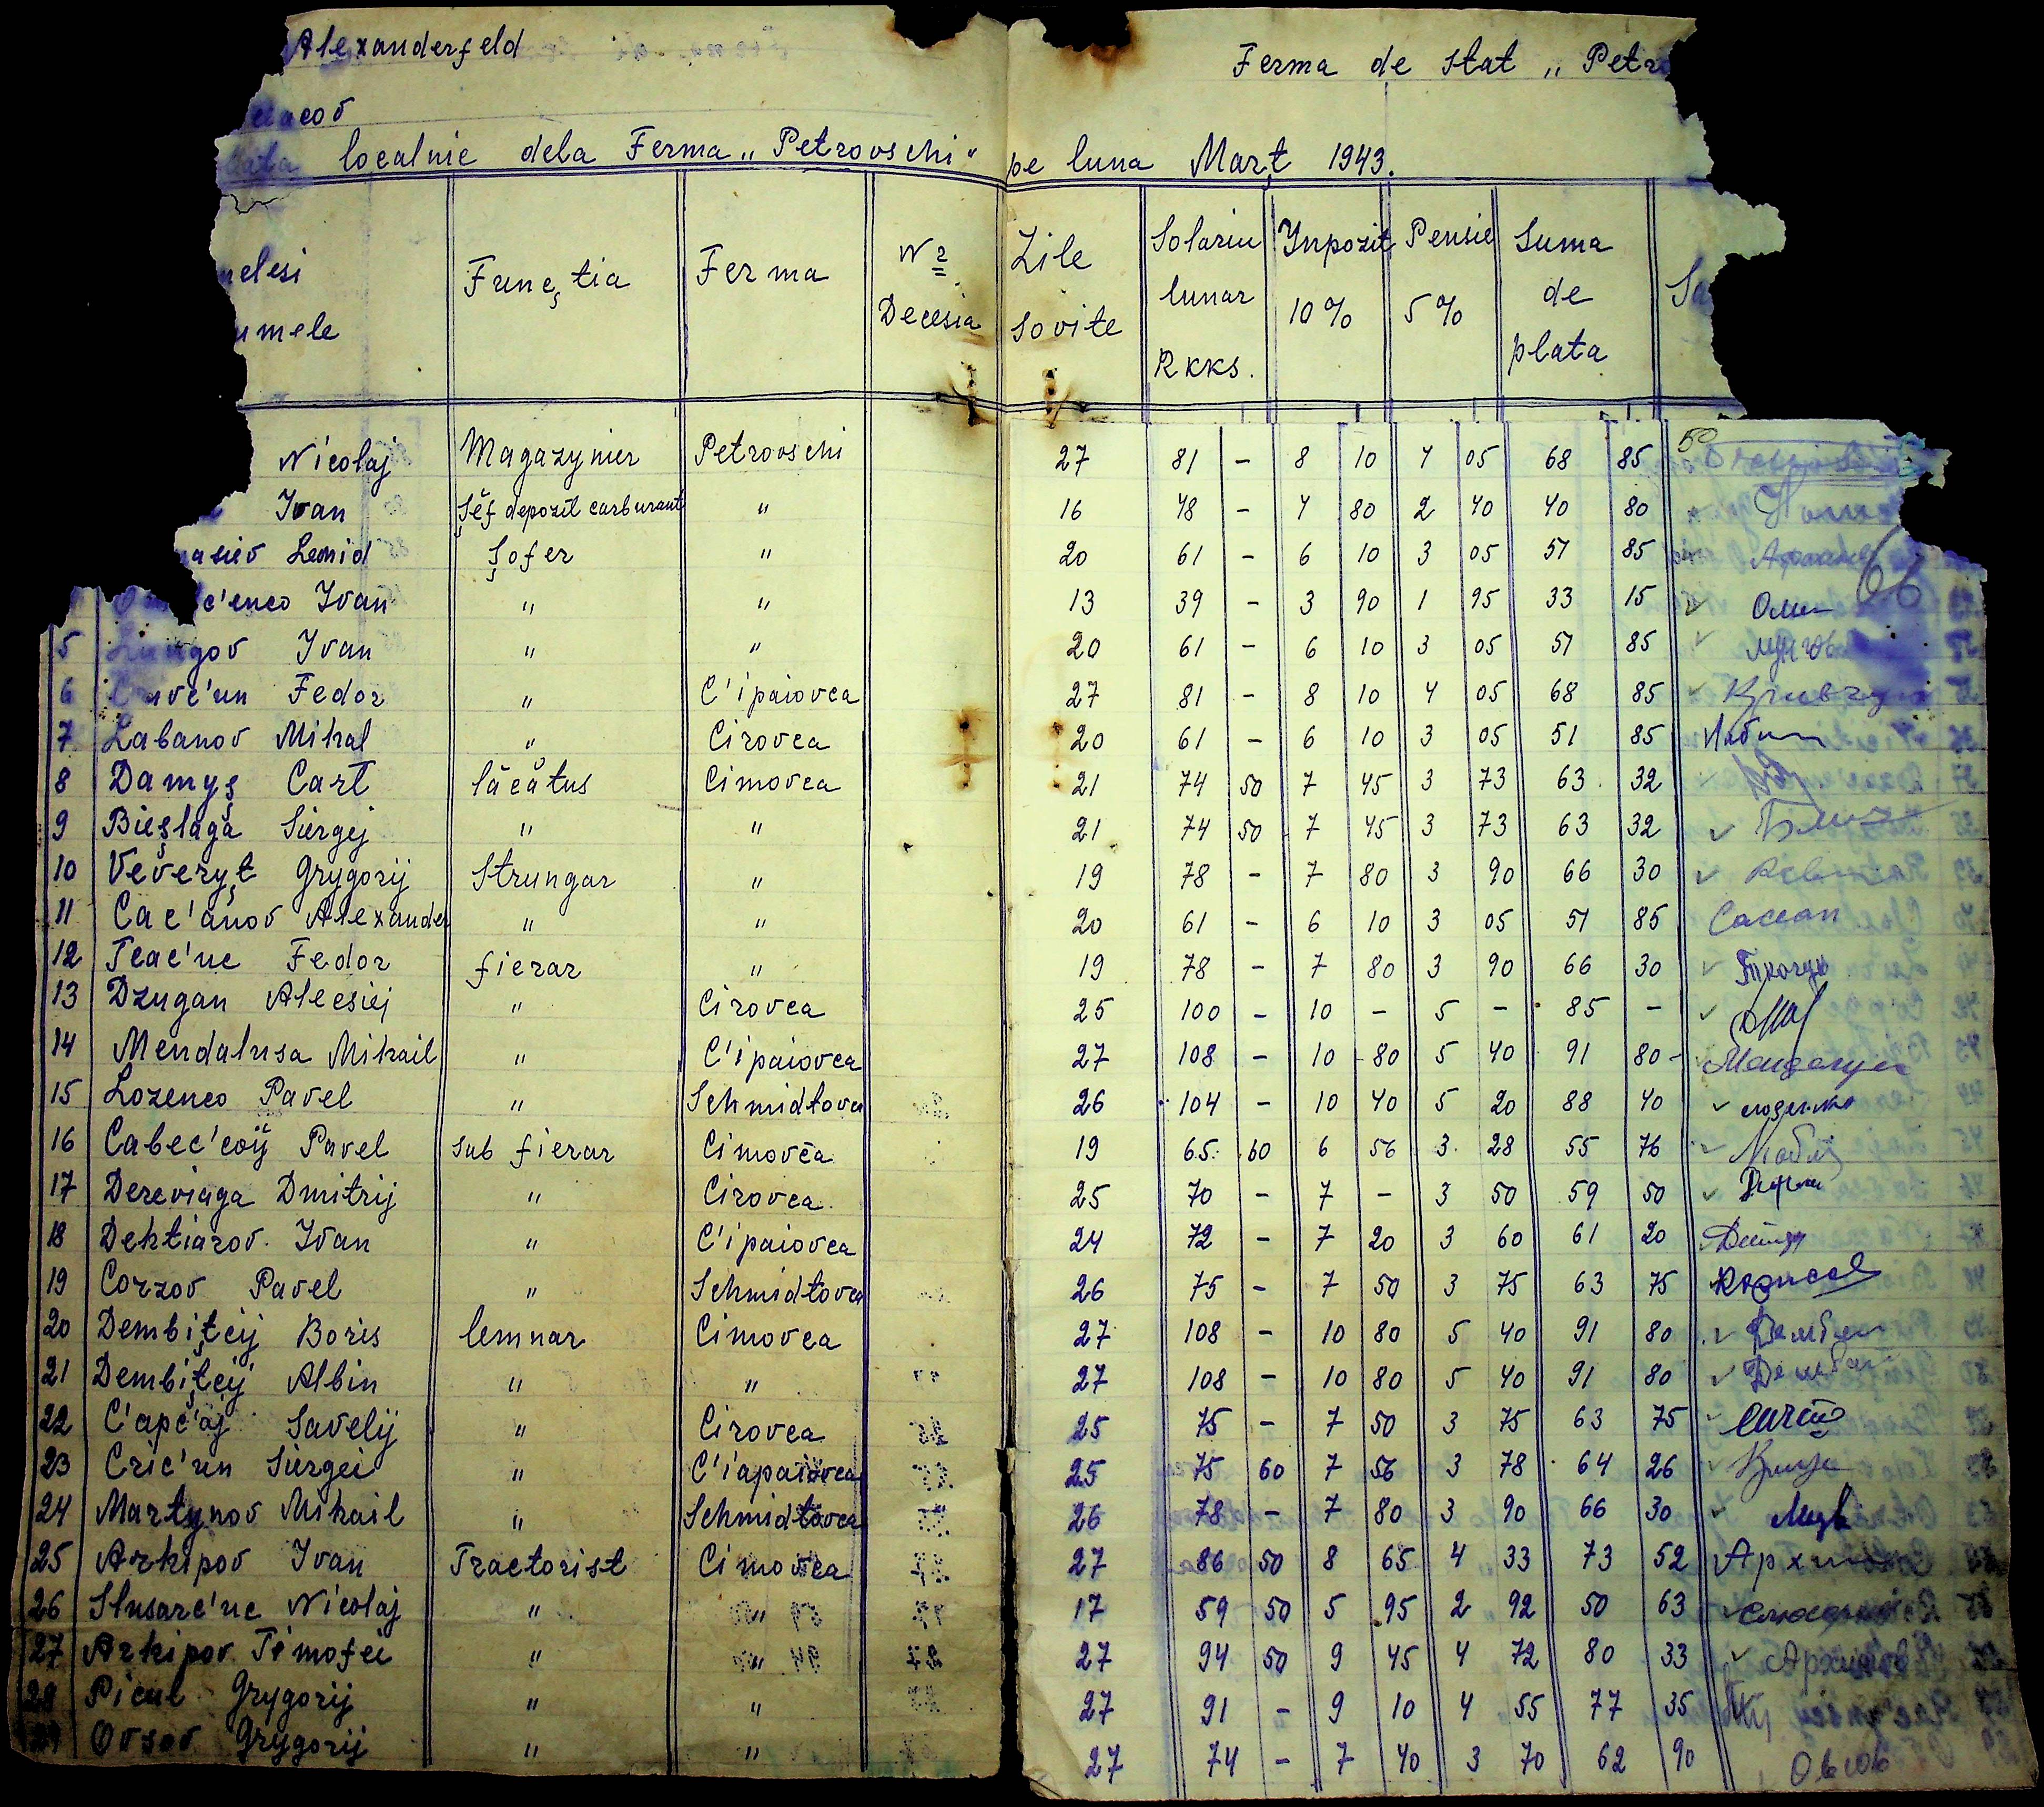 Alexanderfeld
Ferma de stat „ Petr
localnie dela Ferma „ Petrovschi " pe luna Marţ 1943.
elesi Funcţia Ferma Nr Zile Solariu Inpozit Pensie Suma
umele Decesia sovite lunar 10% 5% de
RKKS. plata
Nicolaj Magazynier Petrovschi 27 81 - 8 10 4 05 68 85
Ivan Şef depozit carburant " 16 48 - 4 80 2 40 40 80
asiev Leonid Şofer " 20 61 - 6 10 3 05 51 85
c'enco Ivan " " 13 39 - 3 90 1 95 33 15
5 gov Ivan " " 20 61 - 6 10 3 05 51 85
6 vc'un Fedor " C'ipaiovca 27 81 - 8 10 4 05 68 85
7 Labanov Mihal " Cirovca 20 61 - 6 10 3 05 51 85
8 Damyş Carl lăcătus Cimovca 21 74 50 7 45 3 73 63 32
9 Bieşlaga Siergej " " 21 74 50 7 45 3 73 63 32
10 Veveryţ Grygorij Strungar " 19 78 - 7 80 3 90 66 30
11 Cac'anov Alexander " " 20 61 - 6 10 3 05 51 85 Cacean
12 Teac'uc Fedor fierar " 19 78 - 7 80 3 90 66 30
13 Dzugan Alecsiej " Cirovca 25 100 - 10 - 5 - 85 -
14 Mendalusa Mihail " C'ipaiovca 27 108 - 10 80 5 40 91 80
15 Lozenco Pavel " Schmidtovca 26 104 - 10 40 5 20 88 40
16 Cabec'coij Pavel sub fierar Cimovca 19 65 60 6 56 3 28 55 76
17 Dereviaga Dmitrij " Cirovca 25 70 - 7 - 3 50 59 50
18 Dehtiarov Ivan " C'ipaiovca 24 72 - 7 20 3 60 61 20
19 Corzov Pavel " Schmidtovca 26 75 - 7 50 3 75 63 75
20 Dembiţcij Boris lemnar Cimovca 27 108 - 10 80 5 40 91 80
21 Dembiţcij Albin " " 27 108 - 10 80 5 40 91 80
22 C'apc'aj Savelij " Cirovca 25 75 - 7 50 3 75 63 75
23 Cric'un Siergei " C'iapaiovca 25 75 60 7 56 3 78 64 26
24 Martynov Mihail " Schmidtovca 26 78 - 7 80 3 90 66 30
25 Arhipov Ivan Tractorist Cimovca 27 86 50 8 65 4 33 73 52
26 Slusarc'uc Nicolaj " " 17 59 50 5 95 2 92 50 63
27 Arhipov Timofei " " 27 94 50 9 45 4 72 80 33 Архипов
28 Picul Grygorij " " 27 91 - 9 10 4 55 77 35
29 Ovsov Grygorij " " 27 74 - 7 40 3 70 62 90